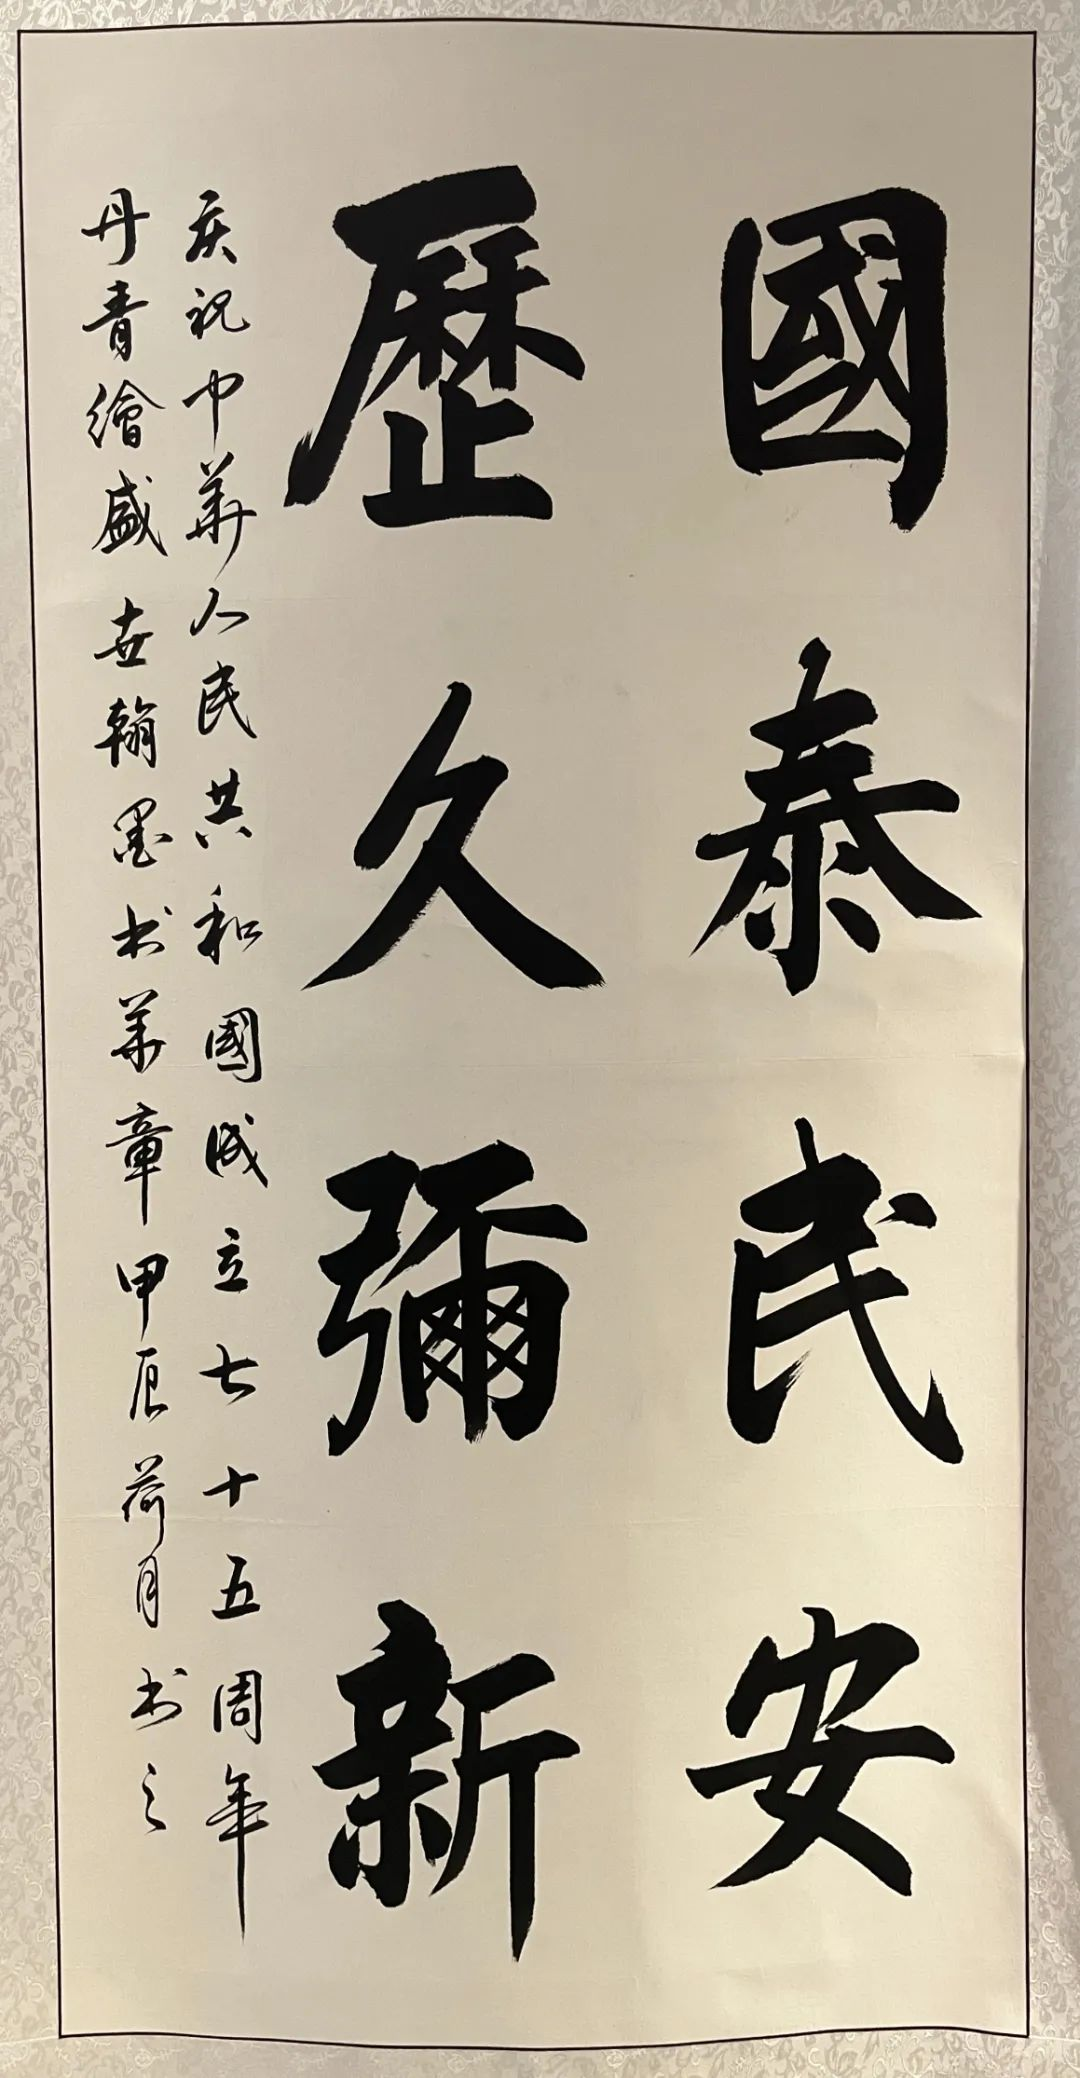 國泰民安
歷久彌新
庆祝中華人民共和國成立七十五周年
丹青繪盛世翰墨书華章甲辰荷月书之